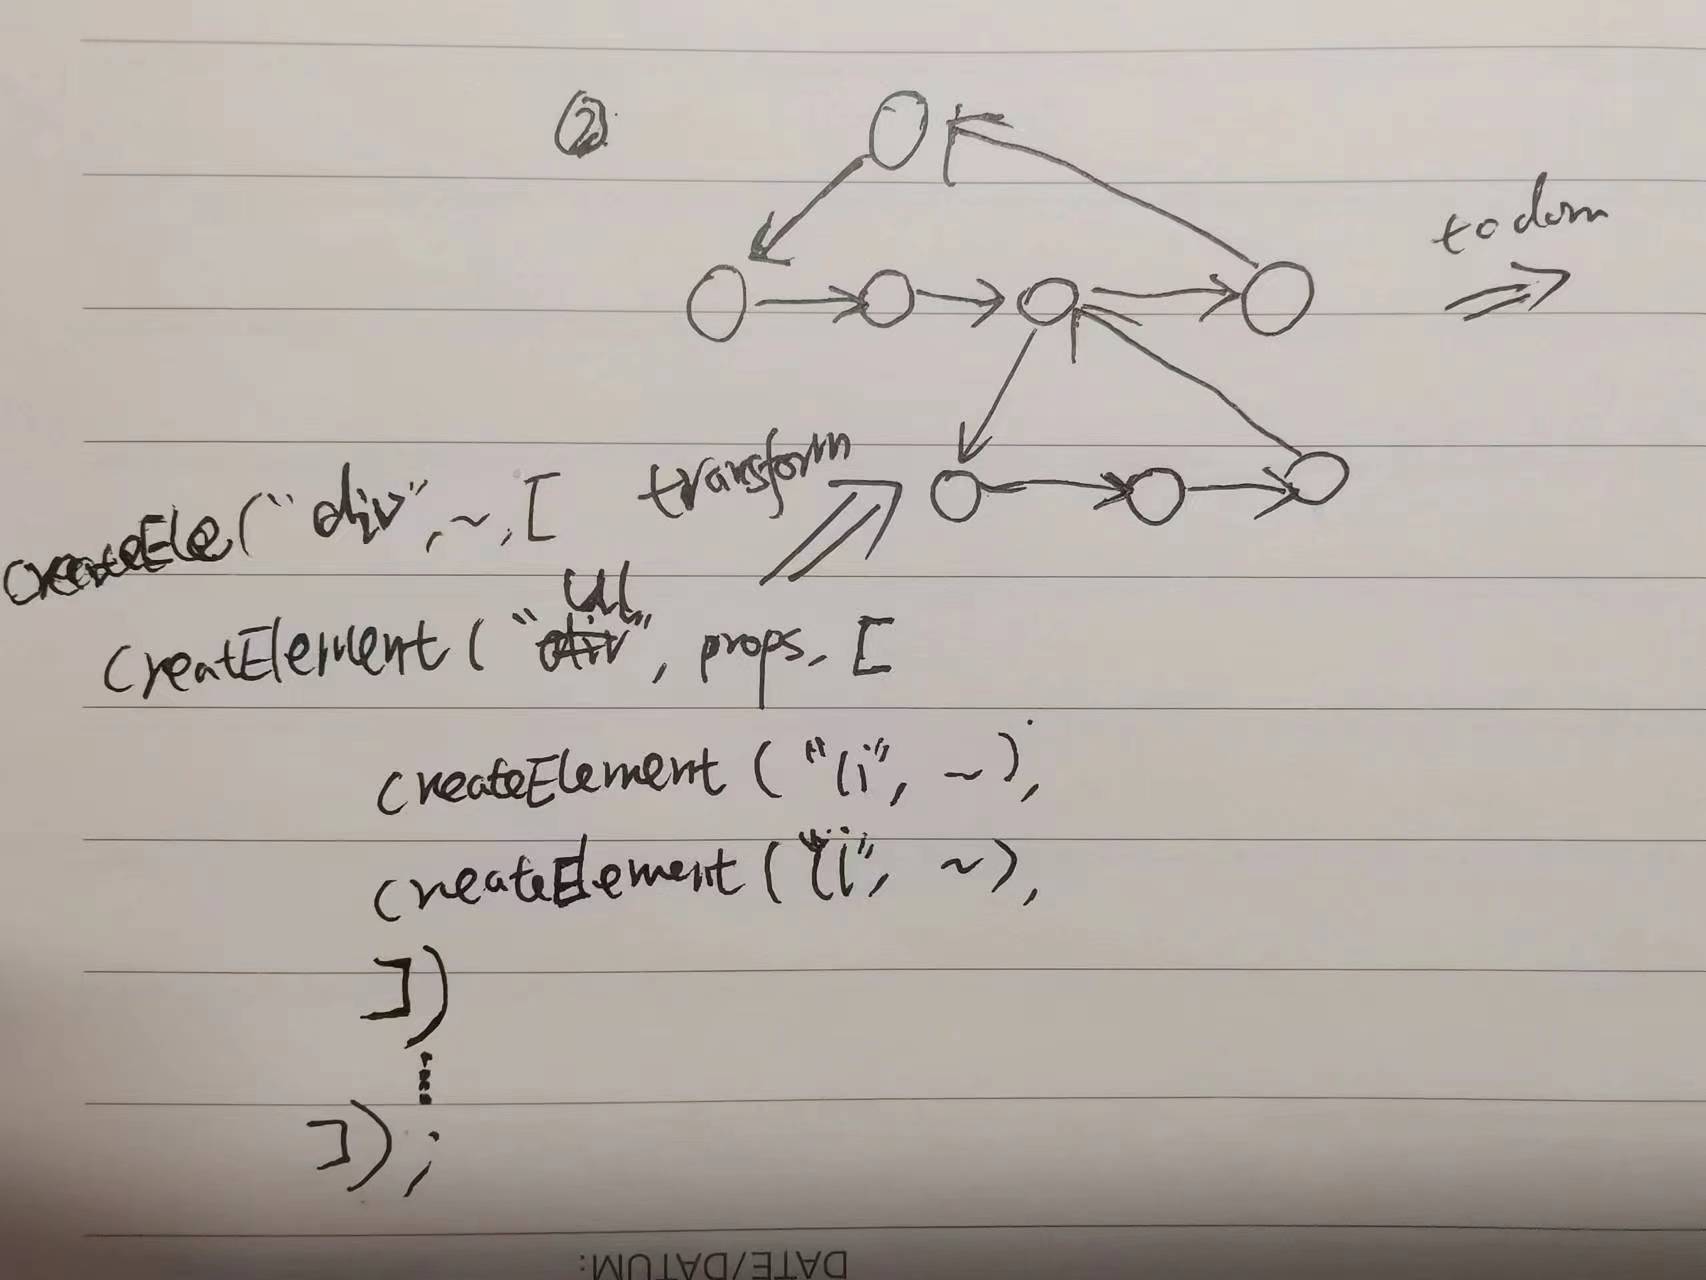 ②
to dom
transform
createEle("div", ~, [
ul
createElement("div", props, [
createElement("li", ~),
createElement("li", ~),
])
]);
DATE/DATUM: